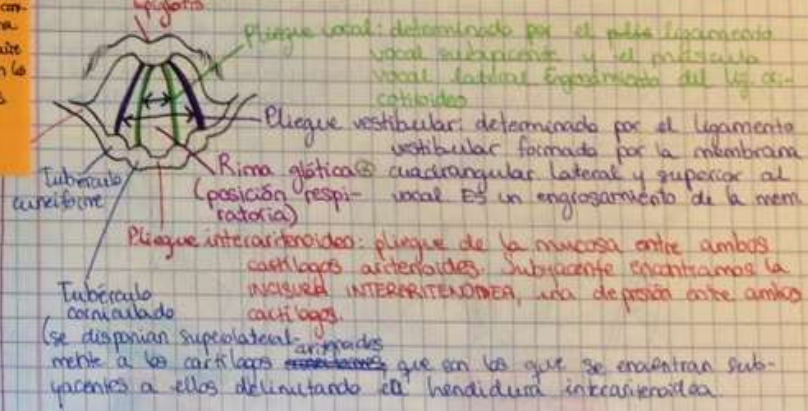 Epiglotis
Pliegue vocal: determinado por el ligamento
vocal subyacente y el músculo
vocal lateral Engrosamiento del lig
Pliegue vestibular: determinado por el ligamento
vestibular formado por la membrana
Rima glótica cuadrangular lateral y superior al
(posición respi- vocal Es un engrosamiento de la mem
ratoria)
Tubérculo
cuneiforme
Pliegue interaritenoideo: pliegue de la mucosa entre ambos
cartílagos aritenoides. Subyacente encontramos la
INCISURA INTERARITENOIDEA, una depresión entre ambos
cartílagos.
Tubérculo
corniculado
(se disponían superolateral-
mente a los cartílagos aritenoides que son los que se encuentran sub-
yacentes a ellos delimitando la hendidura interaritenoidea.